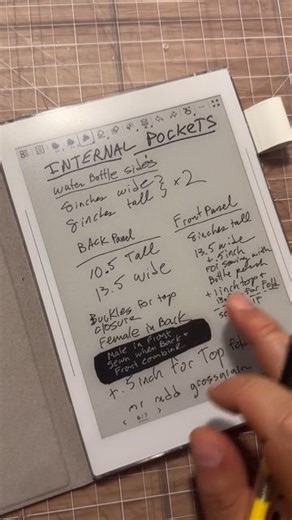 INTERNAL POCKETS
Water Bottle sides
8inches wide } x2
8inches tall
BACK Panel
10.5 Tall
13.5 wide
Buckles for top
closure
Female in Back
Male in Front
Sewn when Back +
Front combine
Front Panel
8inches tall
13.5 wide
+.5inch
For sewing with
Bottle
+ 1 inch top +
For Fold
+.5 inch for Top Fold
grossgrain